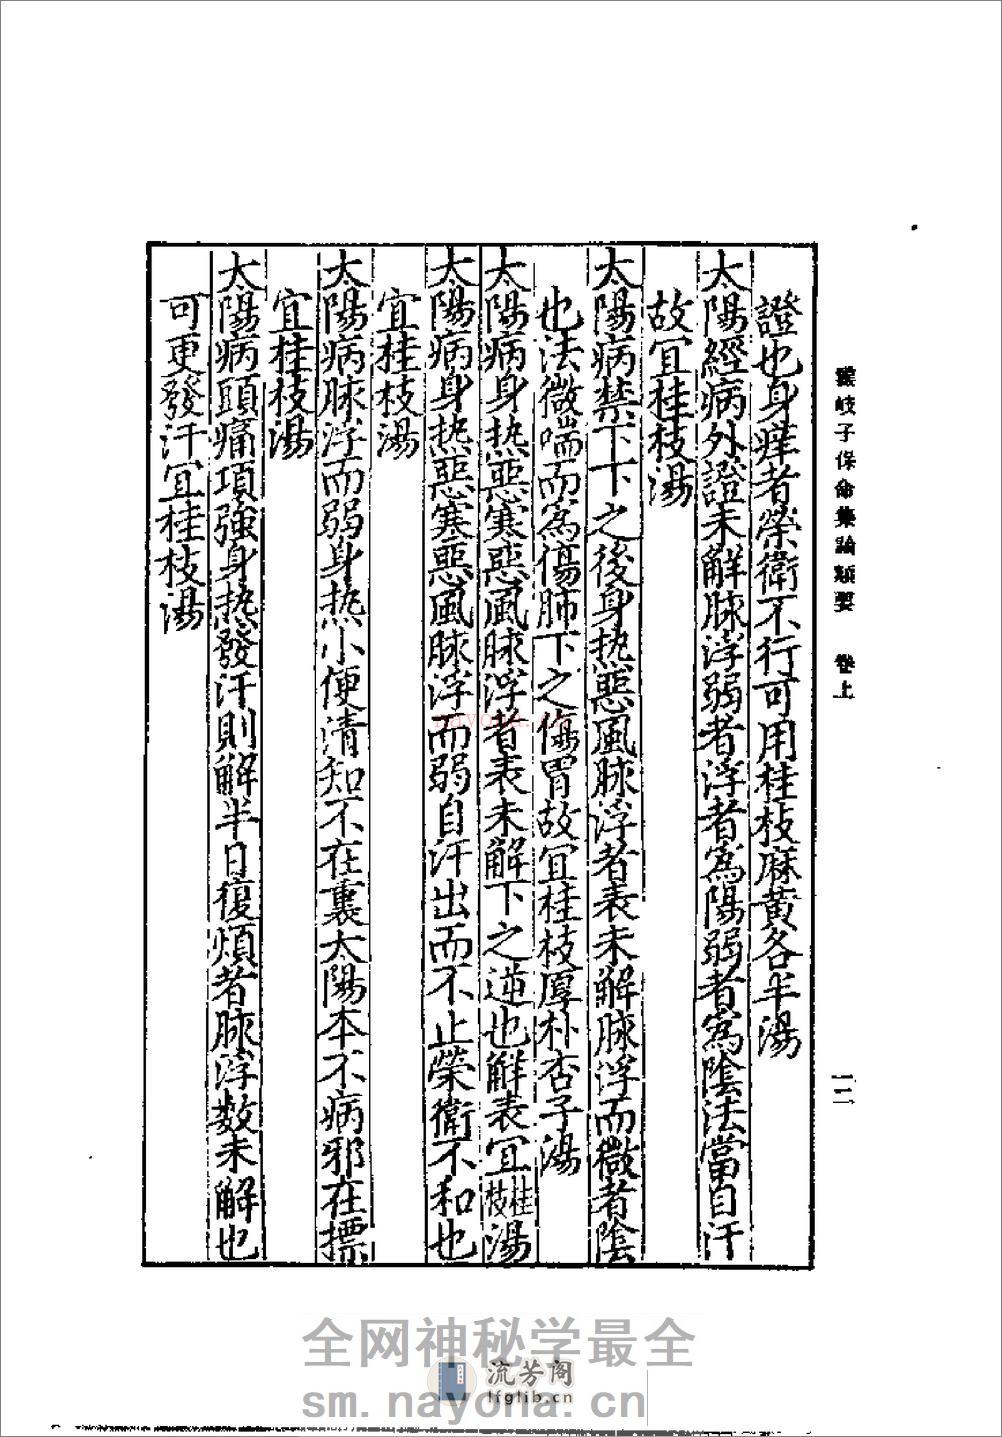 雲岐子保命集論類要 卷上
一二
證也身痒者榮衛不行可用桂枝麻黄各半湯
太陽經病外證未解脉浮弱者浮者爲陽弱者爲陰法當自汗
故宜桂枝湯
太陽病禁下下之後身热惡風脉浮者表未解脉浮而微者陰
也法微喘而爲傷肺下之傷胃故宜桂枝厚朴杏子湯
太陽病身热惡寒惡風脉浮者表未解下之逆也觧表宜桂枝湯
太陽病身热惡寒惡風脉浮而弱自汗出而不止榮衛不和也
宜桂枝湯
太陽病脉浮而弱身热小便清知不在裏太陽本不病邪在摽
宜桂枝湯
太陽病頭痛項強身热發汗則解半日復煩者脉浮数未解也
可更發汗宜桂枝湯
nayona.cn
全网神秘学最全
流芳阁
lfglib.cn
sm.nayona.cn